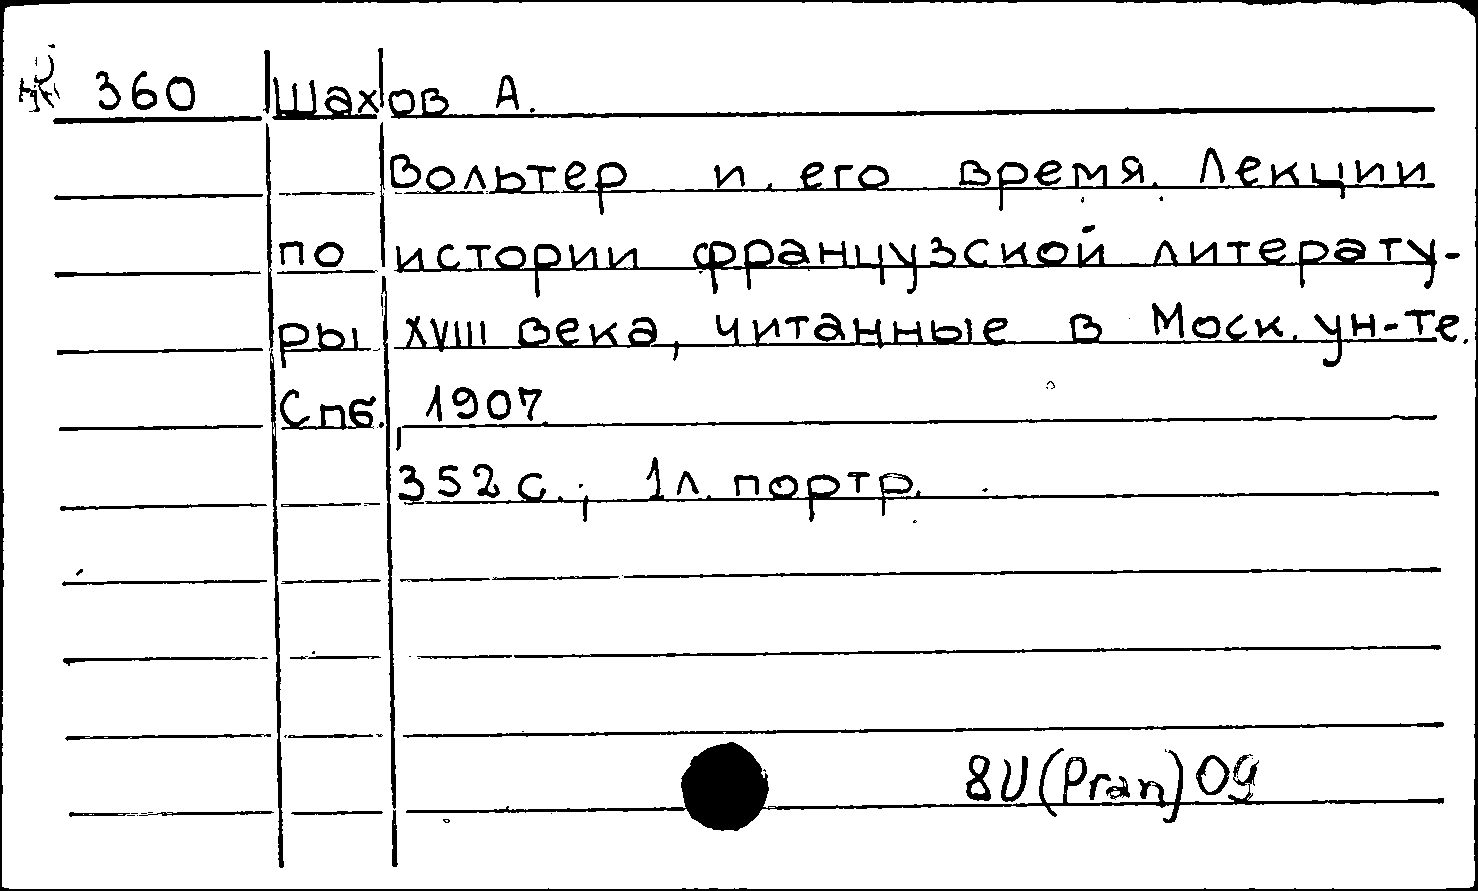 360 Шахов А.
Вольтер и его время. Лекции
по истории французской литерату-
ры XVIII века, читанные в Моск. ун-те.
Спб., 1907.
352 с.; 1 л. портр.
8U(Pran)09